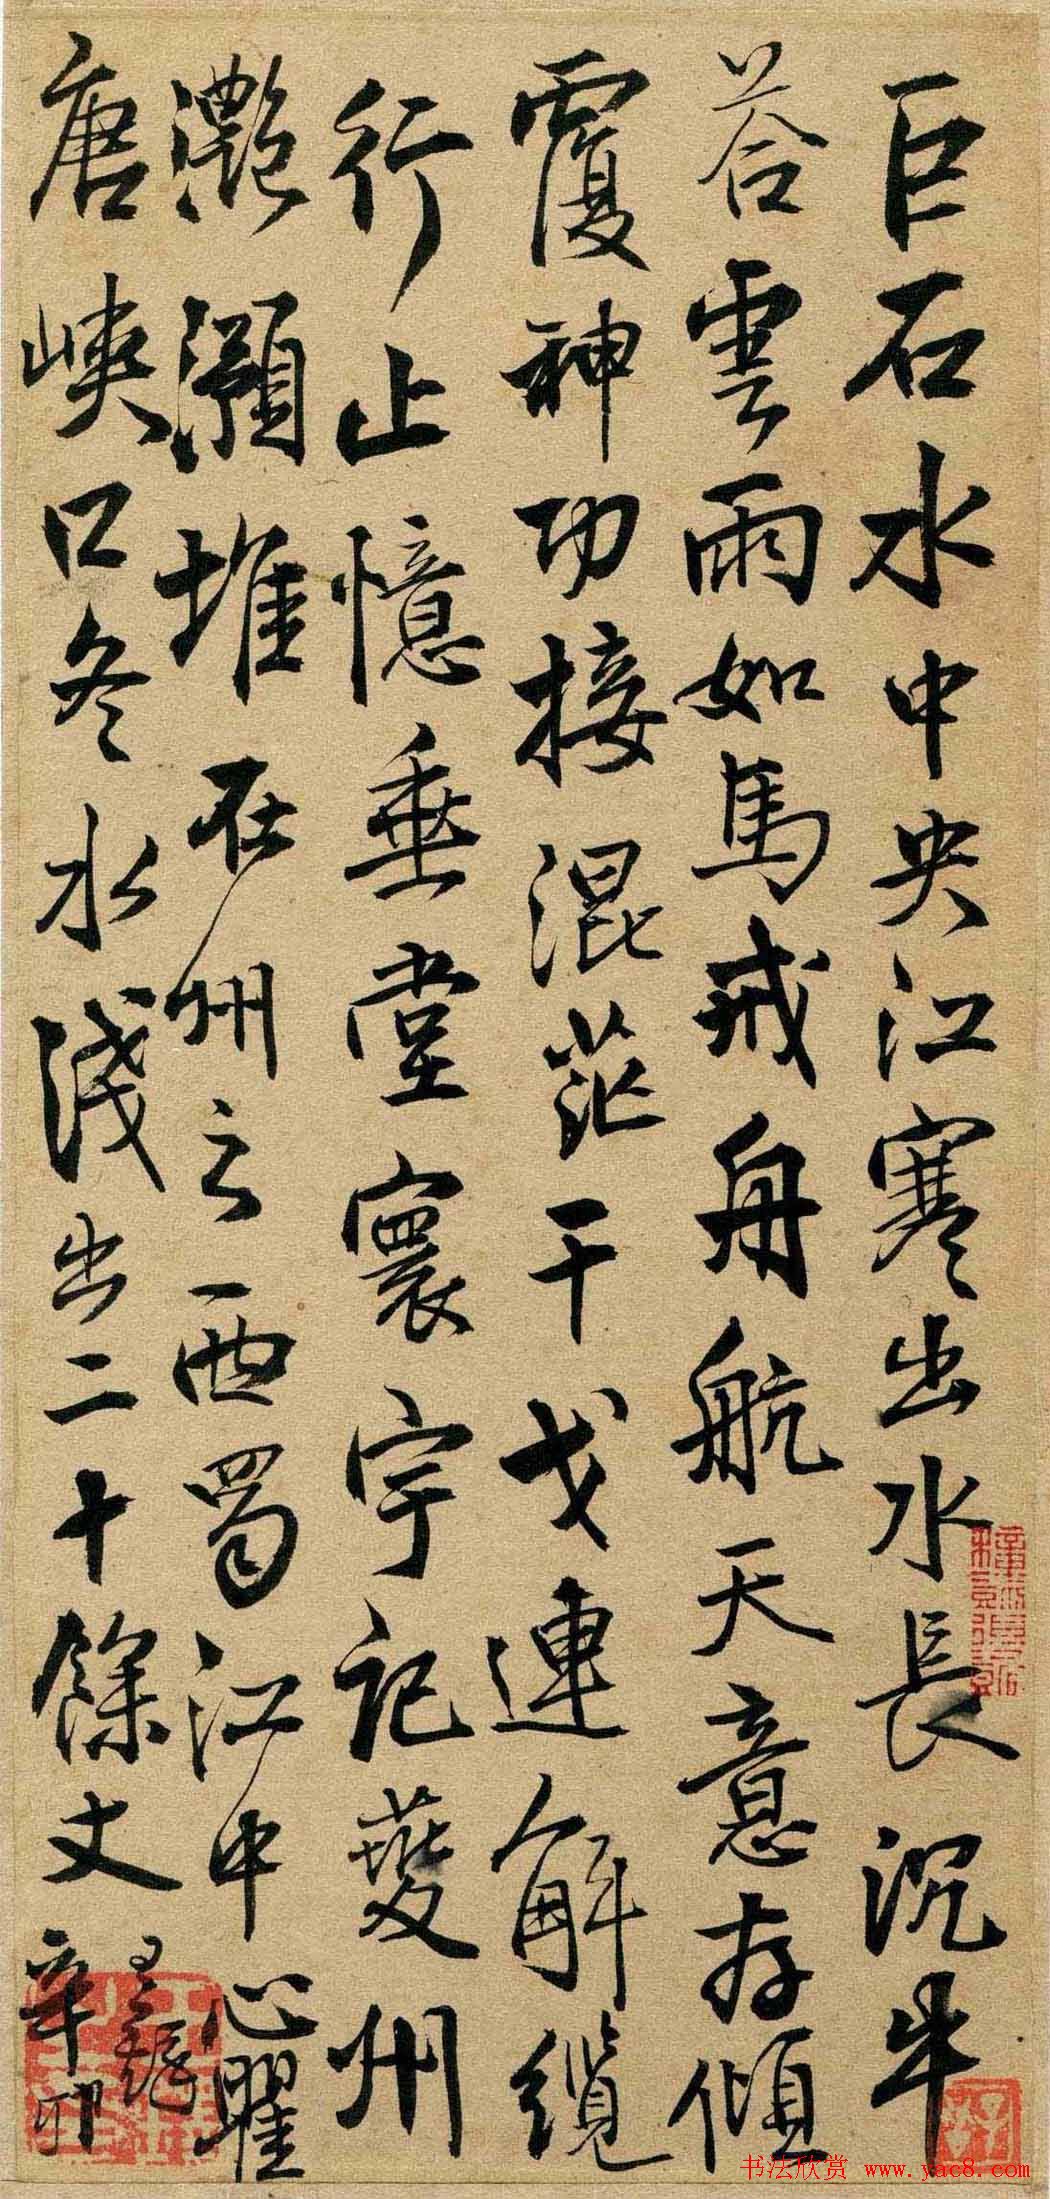 巨石水中央江寒出水長沉牛
荅雲雨如馬戒舟航天意存傾
覆神功接混茫干戈連解纜
行止憶垂堂寰宇記夔州
灔澦堆在州之西蜀江中心曜
唐峽口冬水淺出二十餘丈辛卯
王鐸
书法欣赏 www.yac8.com